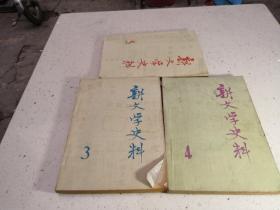 新文学史料
5
新文学史料
3
新文学史料
4